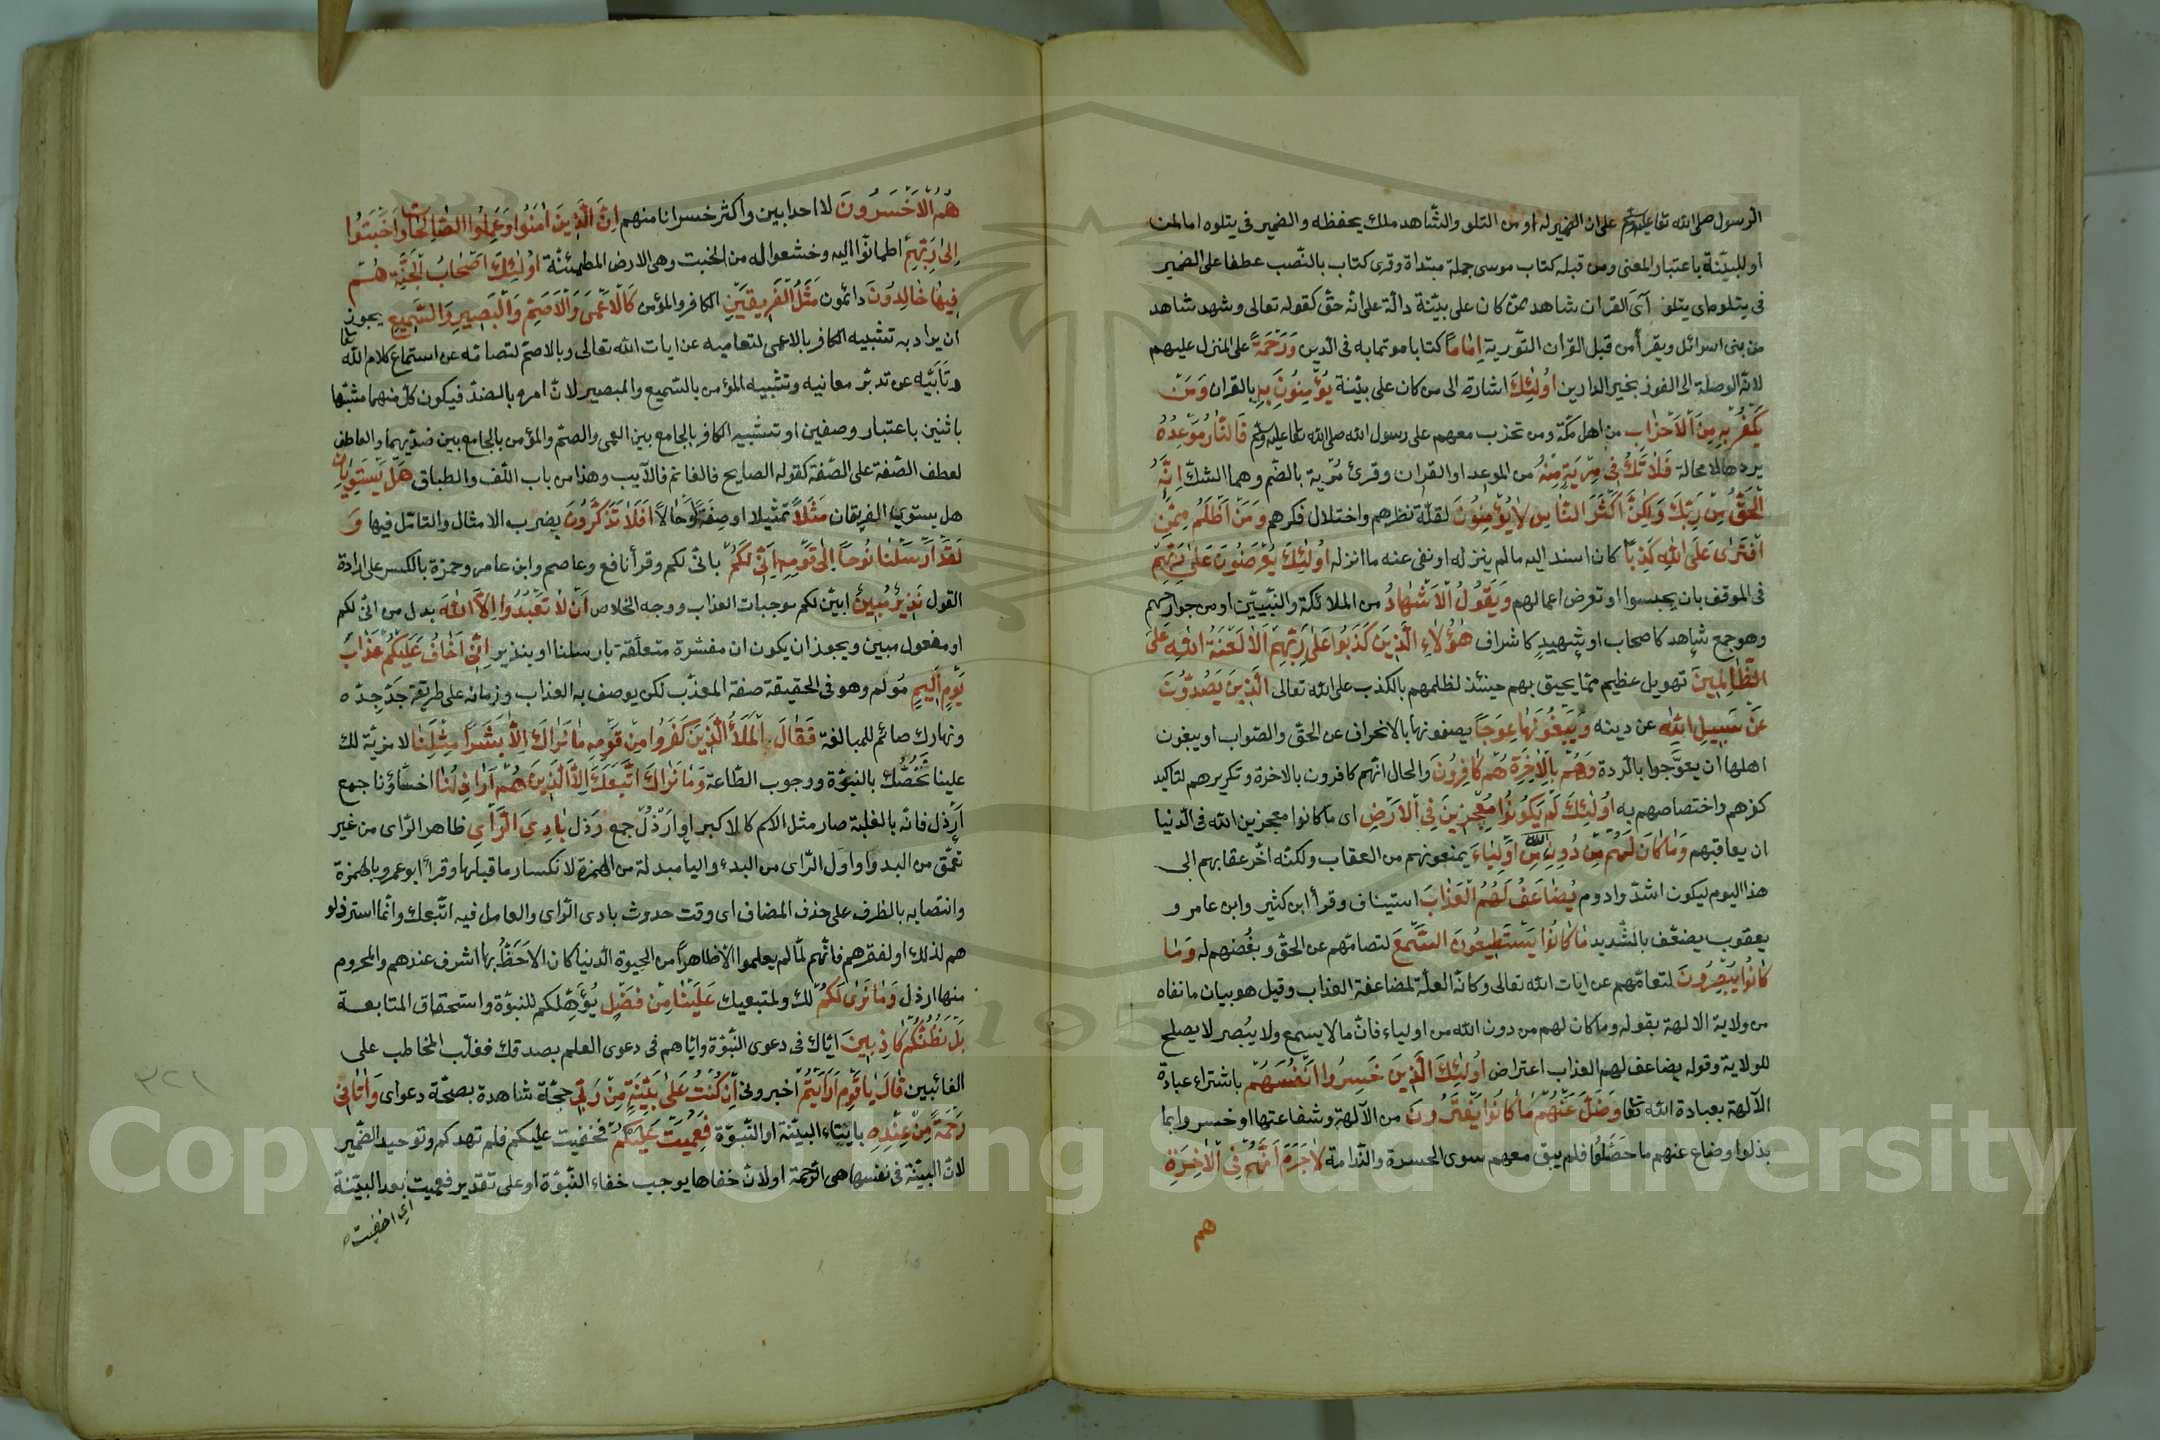 الرسول صلى الله تعا عليه وسلم على ان الضمير له او من التلو والشاهد ملك يحفظه والضمير فى يتلوه اما لمن
او للبيّنة باعتبار المعنى ومن قبله كتاب موسى جملة مبتداة وقرى كتاب بالنّصب عطفا على الضمير
فى يتلوه اى يتلو آى القران شاهد ممّن كان على بيّنة دالّة على انّه حقّ كقوله تعالى وشهد شاهد
من بنى اسرائل ويقرأ من قبل القران التّورية اِمَاماً كتابا موتمابه فى الدين وَرَحْمَةً على المنزل عليهم
لانّه الوصلة الى الفوز بخير الدارين اُولٰئِكَ اشارة الى من كان على بيّنة يُؤْمِنُونَ بِهِ بالقران وَمَنْ
يَكْفُرْ بِهِ مِنَ الْاَحْزَابِ من اهل مكّة ومن تحزب معهم على رسول الله صلى الله تعا عليه وسلم فَالنَّارُ مَوْعِدُهُ
يردها لا محالة فَلَا تَكُ فِى مِرْيَةٍ مِنْهُ من الموعد او القران وقرئ مُرية بالضّم وهما الشكّ اِنَّهُ
الْحَقُّ مِنْ رَبِّكَ وَلٰكِنَّ اَكْثَرَ النَّاسِ لَا يُؤْمِنُونَ لقلّة نظرهم واختلال فكرهم وَمَنْ اَظْلَمُ مِمَّنِ
افْتَرٰى عَلَى اللهِ كَذِباً كان اسند اليه مالم ينزله او نفى عنه ما انزله اُولٰئِكَ يُعْرَضُونَ عَلٰى رَبِّهِمْ
فى الموقف بان يحبسوا او تعرض اعمالهم وَيَقُولُ الْاَشْهَادُ من الملائكة والنّبيّين او من جوارحهم
وهو جمع شاهد كاصحاب او شهيد كاشراف هٰؤُلَاءِ الَّذِينَ كَذَبُوا عَلٰى رَبِّهِمْ اَلَا لَعْنَةُ اللهِ عَلَى
الظَّالِمِينَ تهويل عظيم ممّا يحيق بهم حينئذ لظلمهم بالكذب على الله تعالى الَّذِينَ يَصُدُّونَ
عَنْ سَبِيلِ اللهِ عن دينه وَيَبْغُونَهَا عِوَجاً يصفونها بالانحراف عن الحقّ والصّواب او يبغون
اهلها ان يعوّجوا بالرّدة وَهُمْ بِالْاٰخِرَةِ هُمْ كَافِرُونَ والحال انّهم كافرون بالاخرة وتكريرهم لتاكيد
كفرهم واختصاصهم به اُولٰئِكَ لَمْ يَكُونُوا مُعْجِزِينَ فِى الْاَرْضِ اى ما كانوا معجزين الله فى الدّنيا
ان يعاقبهم وَمَا كَانَ لَهُمْ مِنْ دُونِ اللهِ مِنْ اَوْلِيَاءَ يمنعونهم من العقاب ولكنّه اخّر عقابهم الى
هذا اليوم ليكون اشدّ وادوم يُضَاعَفُ لَهُمُ الْعَذَابُ استيناف وقرأ ابن كثير وابن عامر و
يعقوب يضعّف بالتشديد مَا كَانُوا يَسْتَطِيعُونَ السَّمْعَ لتصامّهم عن الحقّ وبغضهم له وَمَا
كَانُوا يُبْصِرُونَ لتعاميهم عن ايات الله تعالى وكانّه العلّة لمضاعفة العذاب وقيل هو بيان ما نفاه
من ولاية الالهة بقوله وما كان لهم من دون الله من اولياء فانّ ما لا يسمع ولا يبصر لا يصلح
للولاية وقوله يضاعف لهم العذاب اعتراض اُولٰئِكَ الَّذِينَ خَسِرُوا اَنْفُسَهُمْ باشتراء عبادة
الآلهة بعبادة الله تعا وَضَلَّ عَنْهُمْ مَا كَانُوا يَفْتَرُونَ من الآلهة وشفاعتها او خسروا بما
بذلوا وضاع عنهم ما حَصَّلُوا فلم يبق معهم سوى الحسرة والنّدامة لَا جَرَمَ اَنَّهُمْ فِى الْاٰخِرَةِ
هم
هُمُ الْاَخْسَرُونَ لا احد ابين واكثر خسرانا منهم اِنَّ الَّذِينَ اٰمَنُوا وَعَمِلُوا الصَّالِحَاتِ وَاَخْبَتُوا
اِلٰى رَبِّهِمْ اطمانّوا اليه وخشعوا له من الخبت وهى الارض المطمئنّة اُولٰئِكَ اَصْحَابُ الْجَنَّةِ هُمْ
فِيهَا خَالِدُونَ دائمون مَثَلُ الْفَرِيقَيْنِ الكافر والمؤمن كَالْاَعْمٰى وَالْاَصَمِّ وَالْبَصِيرِ وَالسَّمِيعِ يجوز
ان يراد به تشبيه الكافر بالاعمى لتعاميه عن ايات الله تعالى وبالاصمّ لتصامّه عن استماع كلام الله تعا
وتأبّيه عن تدبّر معانيه وتشبيه المؤمن بالسّميع والبصير لانّ امره بالضدّ فيكون كلّ منهما مشبّها
باثنين باعتبار وصفين او تشبيه الكافر بالجامع بين العمى والصمّ والمؤمن بالجامع بين ضدّيهما والعاطف
لعطف الصّفة على الصّفة كقوله الصابح فالغانم فالآيب وهذا من باب اللّف والطباق هَلْ يَسْتَوِيَانِ
هل يستوى الفريقان مَثَلاً تمثيلا او صفة او حالاً اَفَلَا تَذَكَّرُونَ بضرب الامثال والتامّل فيها وَ
لَقَدْ اَرْسَلْنَا نُوحاً اِلٰى قَوْمِهِ اِنِّى لَكُمْ بانّى لكم وقرأ نافع وعاصم وابن عامر وحمزة بالكسر على ارادة
القول نَذِيرٌ مُبِينٌ ابيّن لكم موجبات العذاب ووجه الخلاص اَنْ لَا تَعْبُدُوا اِلَّا اللهَ بدل من انّى لكم
او مفعول مبين ويجوز ان يكون ان مفسّرة متعلّقة بارسلنا او بنذير اِنِّى اَخَافُ عَلَيْكُمْ عَذَابَ
يَوْمٍ اَلِيمٍ مؤلم وهو فى الحقيقة صفة المعذّب لكن يوصف به العذاب وزمانه على طريقة جَدّ جِدّه
ونهارك صائم للمبالغة فَقَالَ الْمَلَأُ الَّذِينَ كَفَرُوا مِنْ قَوْمِهِ مَا نَرٰيكَ اِلَّا بَشَراً مِثْلَنَا لا مزيّة لك
علينا تَخُصُّك بالنبوّة ووجوب الطّاعة وَمَا نَرَاكَ اتَّبَعَكَ اِلَّا الَّذِينَ هُمْ اَرَاذِلُنَا اخسّاؤنا جمع
اَرْذل فانّه بالغلبة صار مثل الاسم كالاكبر او ارْذُلْ جمع رَذل بَادِىَ الرَّأْىِ ظاهر الرّاى من غير
تعمّق من البدو او اوّل الرّاى من البدء واليا مبدلة من الهمزة لانكسار ما قبلها وقرأ ابو عمرو بالهمزة
وانتصابه بالظرف على حذف المضاف اى وقت حدوث بادى الرّاى والعامل فيه اتّبعك وانّما استرذلو
هم لذلك او لفقرهم فانّهم لمّا لم يعلموا الّا ظاهراً من الحيوة الدّنيا كان الاَحَظُّ بها اشرف عندهم والمحروم
منها ارذل وَمَا نَرٰى لَكُمْ لك ولمتبعيك عَلَيْنَا مِنْ فَضْلٍ يُؤَهّلكم للنبوّة واستحقاق المتابعة
بَلْ نَظُنُّكُمْ كَاذِبِينَ ايّاك فى دعوى النّبوّة وايّاهم فى دعوى العلم بصدقك فغلّب المخاطب على
الغائبين قَالَ يَا قَوْمِ اَرَاَيْتُمْ اخبرونى اِنْ كُنْتُ عَلٰى بَيِّنَةٍ مِنْ رَبِّى حجّة شاهدة بصحّة دعواى وَاٰتَانِى
رَحْمَةً مِنْ عِنْدِهِ بايتاء البيّنة او النّبوّة فَعُمِيَتْ عَلَيْكُمْ فخفيت عليكم فلم تهدكم وتوحيد الضّمير
لانّ البيّنة فى نفسها هى الرّحمة او لانّ خفاها يوجب خفاء النّبوّة او على تقدير فعميت بعد البيّنة
اى اخفيت
٣٢١
Copyright © King Saud University